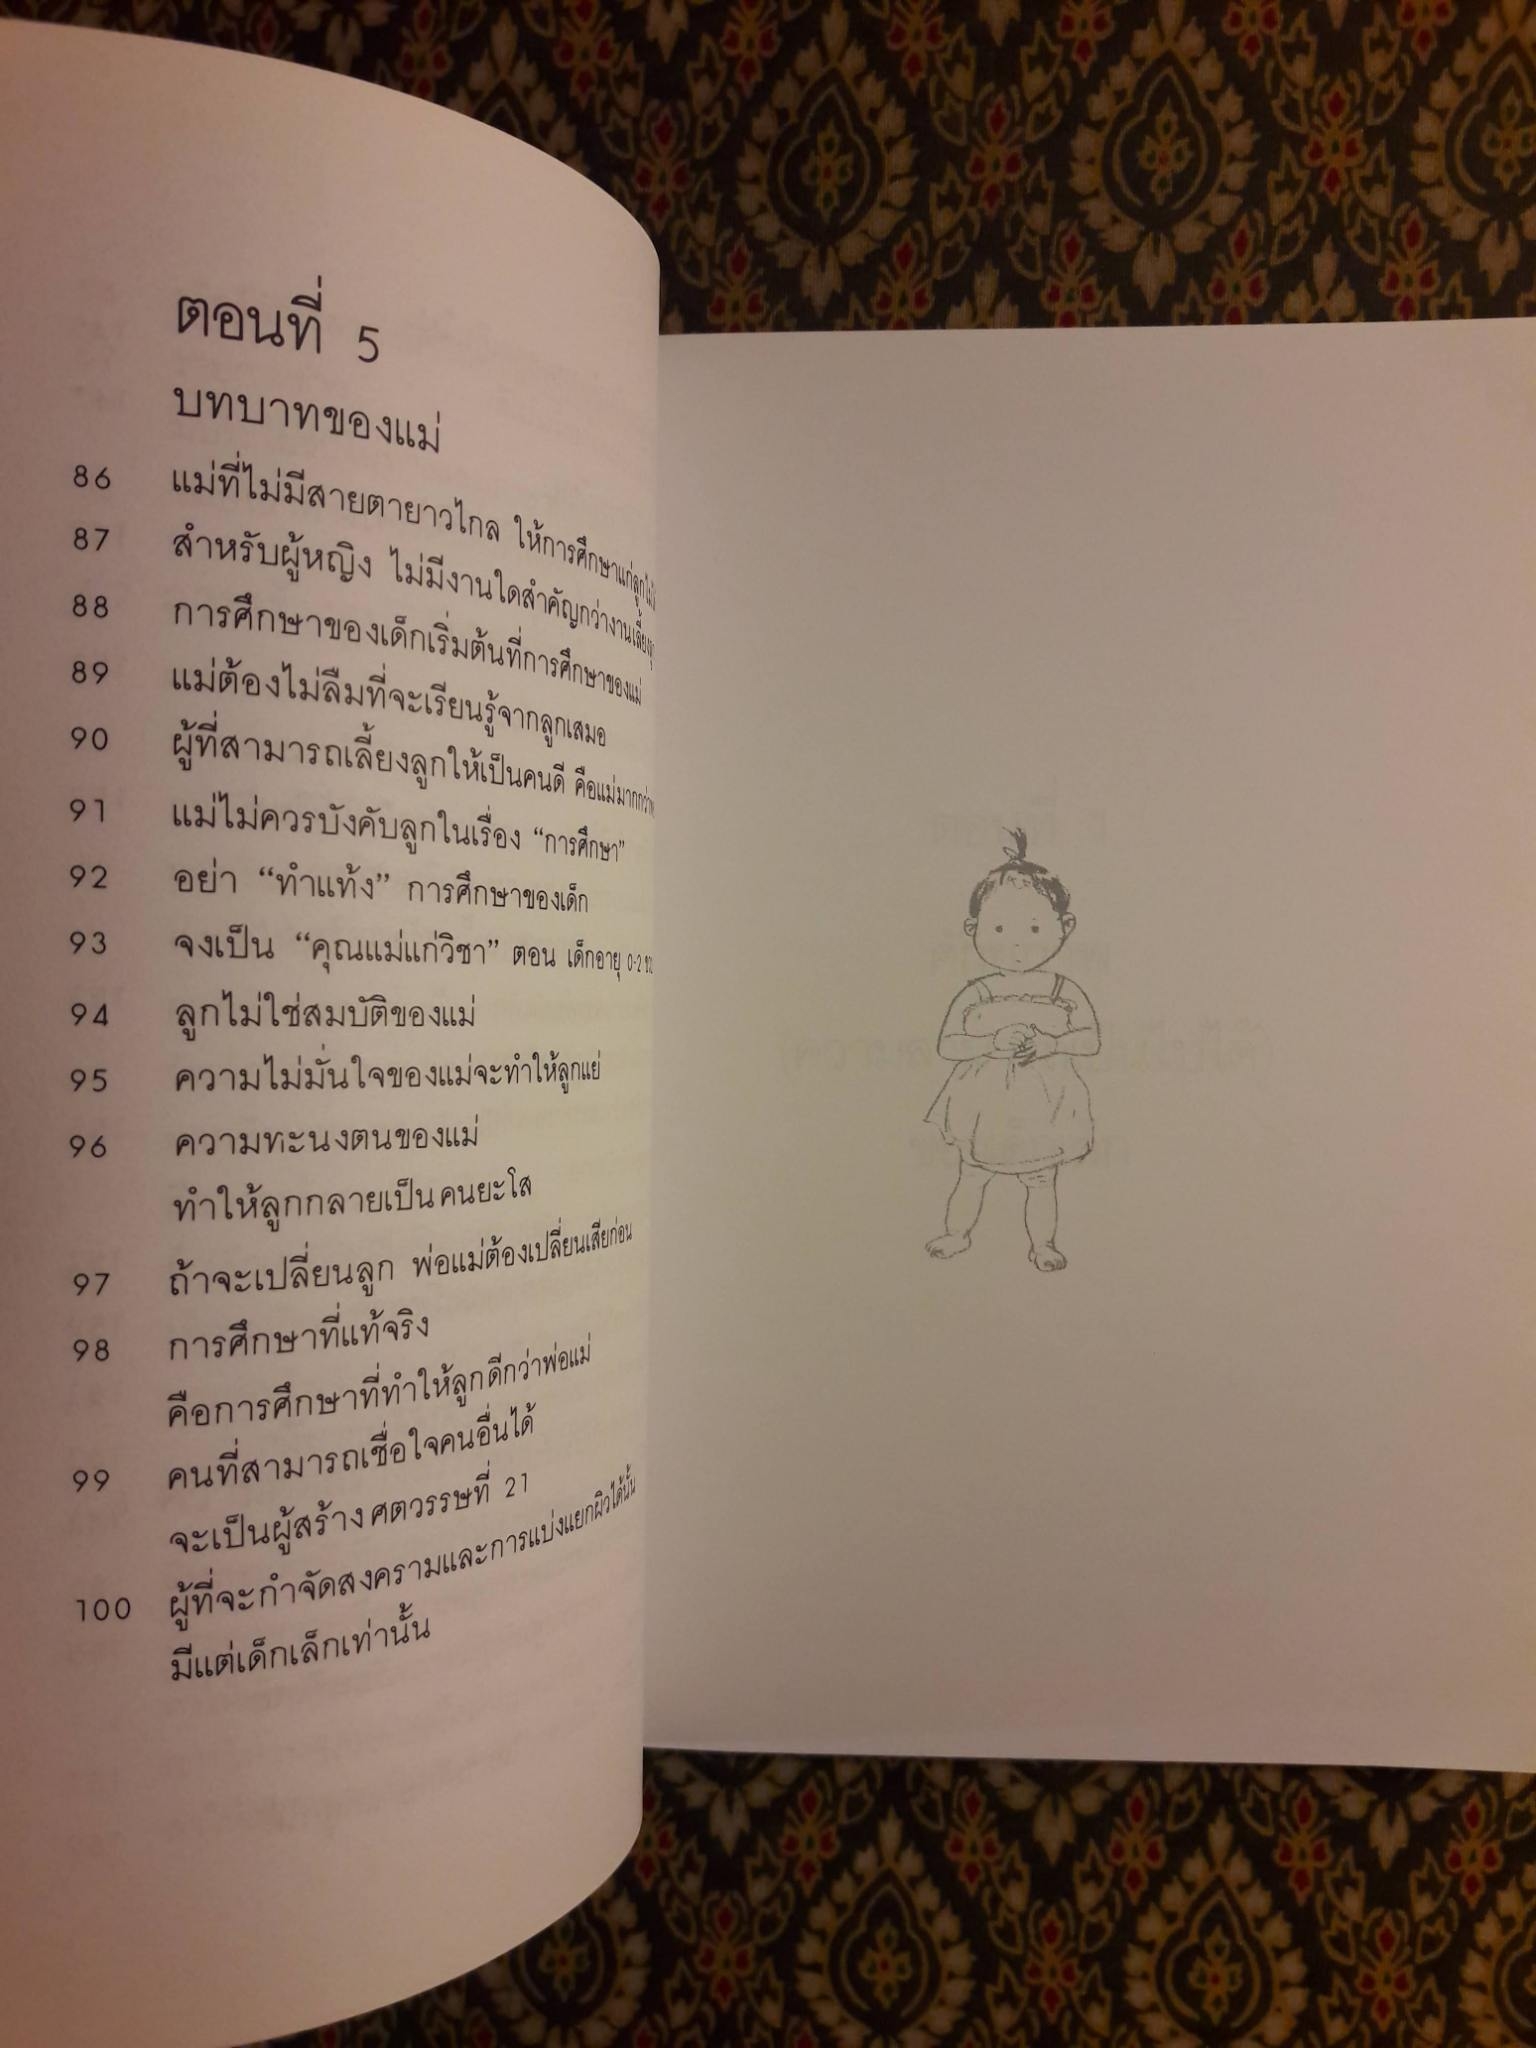 ตอนที่ 5
บทบาทของแม่
86 แม่ที่ไม่มีสายตายาวไกล ให้การศึกษาแก่ลูก
87 สำหรับผู้หญิง ไม่มีงานใดสำคัญกว่างานเลี้ยง
88 การศึกษาของเด็กเริ่มต้นที่การศึกษาของแม่
89 แม่ต้องไม่ลืมที่จะเรียนรู้จากลูกเสมอ
90 ผู้ที่สามารถเลี้ยงลูกให้เป็นคนดี คือแม่มากกว่า
91 แม่ไม่ควรบังคับลูกในเรื่อง “การศึกษา”
92 อย่า “ทำแท้ง” การศึกษาของเด็ก
93 จงเป็น “คุณแม่แก่วิชา” ตอน เด็กอายุ 0-2
94 ลูกไม่ใช่สมบัติของแม่
95 ความไม่มั่นใจของแม่จะทำให้ลูกแย่
96 ความทะนงตนของแม่
ทำให้ลูกกลายเป็นคนยะโส
97 ถ้าจะเปลี่ยนลูก พ่อแม่ต้องเปลี่ยนเสียก่อน
98 การศึกษาที่แท้จริง
คือการศึกษาที่ทำให้ลูกดีกว่าพ่อแม่
99 คนที่สามารถเชื่อใจคนอื่นได้
จะเป็นผู้สร้างศตวรรษที่ 21
100 ผู้ที่จะกำจัดสงครามและการแบ่งแยกผิวได้นั้น
มีแต่เด็กเล็กเท่านั้น